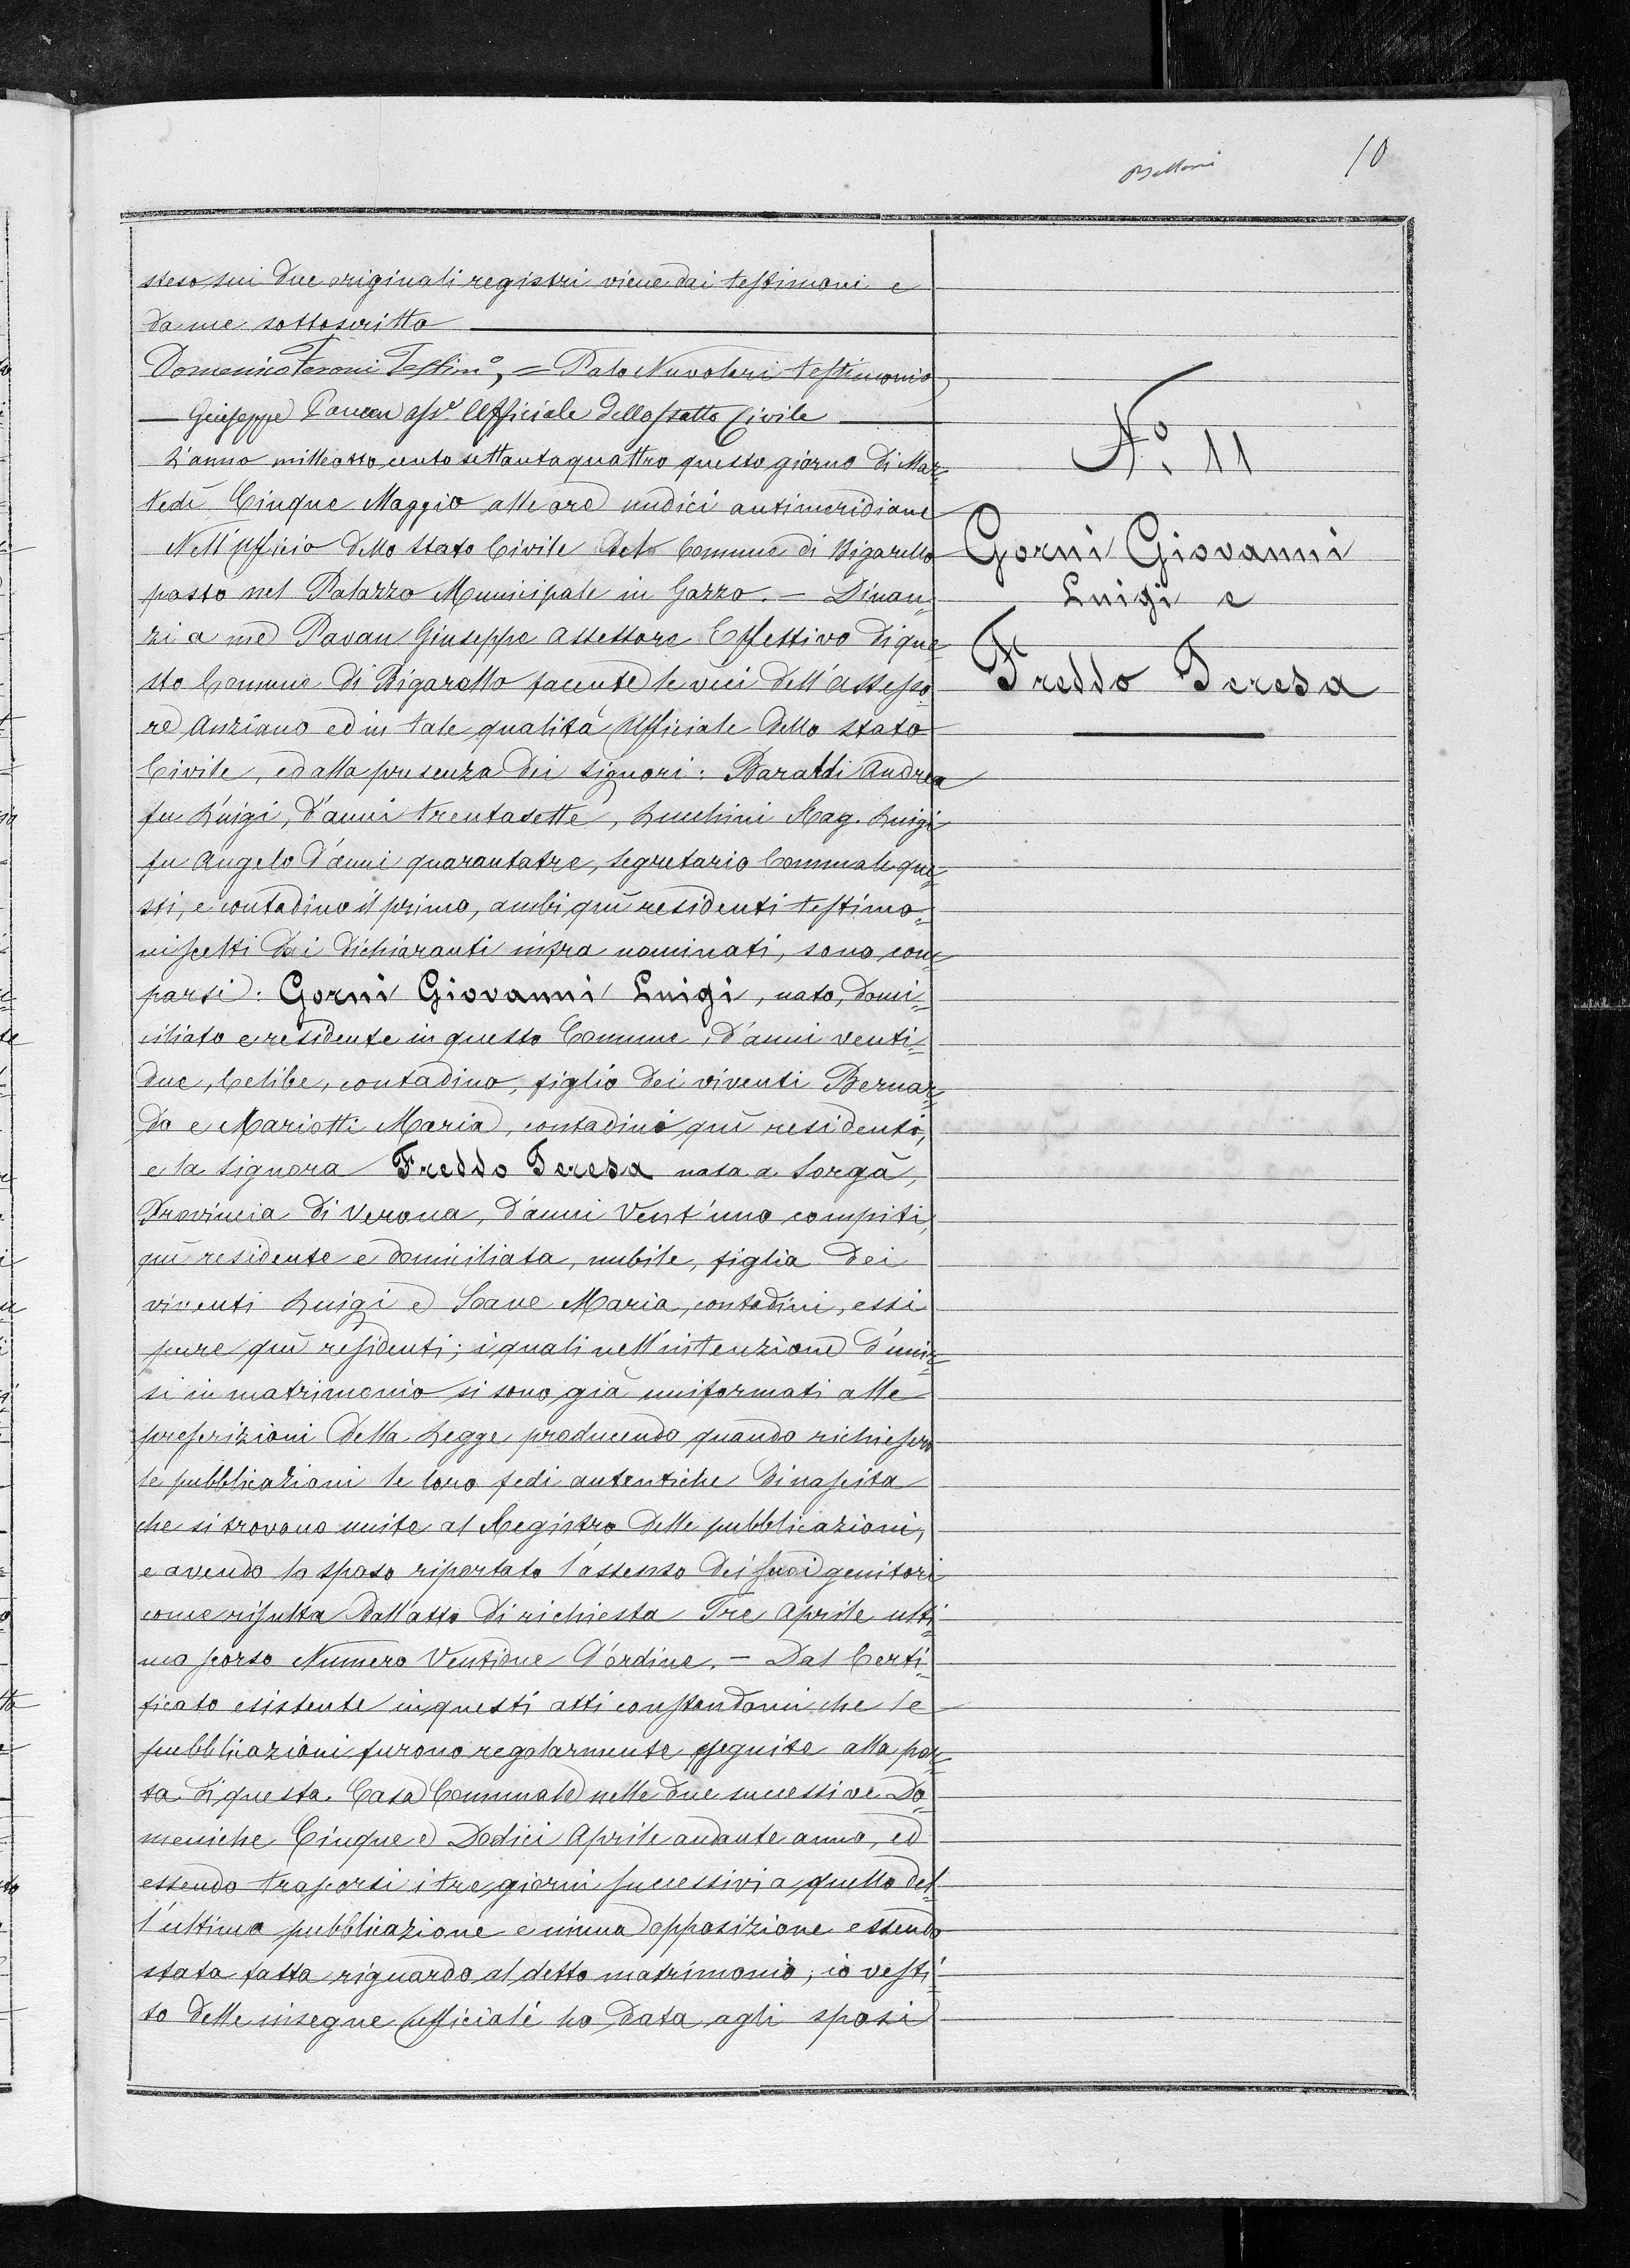 10
steso sui due originali registri viene dai testimoni e
da me sottoscritto
Domenico Feroni Testimo, = Palo Nuvolari testimonio,
— Giuseppe Pavan Assre Ufficiale dello stato Civile —
L'anno milleottocento settantaquattro questo giorno di Mar=
tedì Cinque Maggio alle ore undici antimeridiane
Nell'Ufficio dello Stato Civile del Comune di Bigarello
posto nel Palazzo Municipale in Gazzo. — Dinan=
zi a me Pavan Giuseppe Assessore Effettivo di que=
sto Comune di Bigarello facente le veci dell'Assesso=
re Anziano ed in tale qualità Ufficiale dello stato
Civile, ed alla presenza dei Signori: Baraldi Andrea
fu Luigi, d'anni trentasette, Lucchini Rag. Luigi
fu Angelo d'anni quarantatre, Segretario Comunale que=
sti, e contadino il primo, ambi quì residenti testimo=
ni scelti dai dichiaranti infra nominati, sono com=
parsi: Gorni Giovanni Luigi, nato, domi=
ciliato e residente in questo Comune, d'anni venti=
due, Celibe, contadino, figlio dei viventi Bernar=
do e Mariotti Maria, contadini quì residenti,
e la Signora Freddo Teresa nata a Sorgà,
Provincia di Verona, d'anni Vent'uno compiti,
quì residente e domiciliata, nubile, figlia dei
viventi Luigi e Scave Maria, contadini, essi
pure quì residenti; i quali nell'intenzione d'unir=
si in matrimonio si sono già uniformati alle
prescrizioni della Legge producendo quando richiesero
le pubblicazioni le loro fedi autentiche di nascita
che si trovano unite al Registro delle pubblicazioni,
e avendo lo sposo riportato l'assenso dei suoi genitori
come risulta dall'atto di richiesta Tre Aprile ulti=
mo scorso Numero Ventidue d'ordine. — Dal Certi=
ficato esistente in questi atti constandomi che le
pubblicazioni furono regolarmente eseguite alla por=
ta di questa Casa Comunale nelle due successive Do=
meniche Cinque e Dodici Aprile andante anno, ed
essendo trascorsi i tre giorni successivi a quello del=
l'ultima pubblicazione e niuna opposizione essendo
stata fatta riguardo al detto matrimonio; io vesti=
to delle insegne ufficiali ho data agli sposi
No. 11
Gorni Giovanni
Luigi e
Freddo Teresa